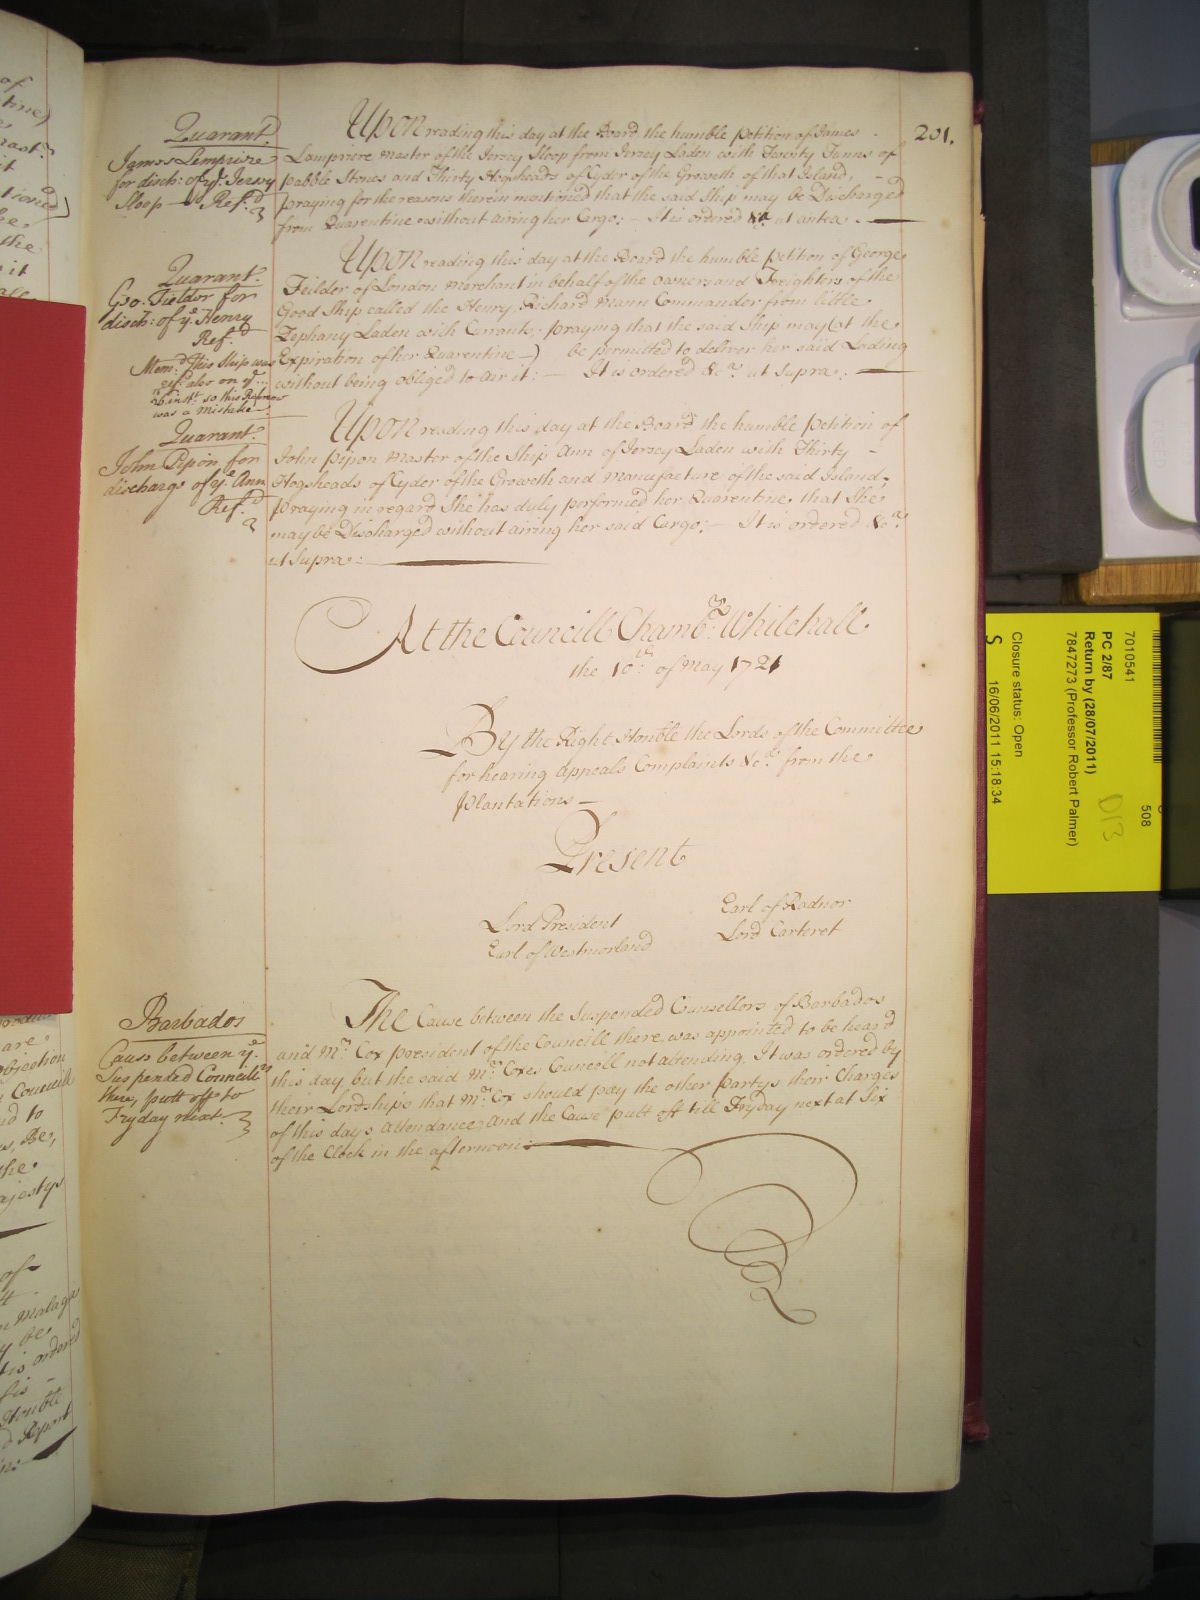 201.
Quarant.
James Lempriere
for disch: of ye. Jersey
Sloop — Ref.d
Upon reading this day at the Board the humble Petition of James
Lampriere Master of the Jersey Sloop from Jersey Laden with Twenty Tunns of
pabble Stones and Thirty Hogsheads of Cyder of the Groweth of that Island,
praying for the reasons therein mentioned that the said Ship may be Discharged
from Quarentine without airing her Cargo; — It is ordered &c.a ut antea.
Quarant.
Geo: Fielder for
disch: of ye. Henry
Ref.d
Mem.d This Ship was
also on ye
26 inst. so this Refrence
was a mistake
Upon reading this day at the Board the humble petition of George
Feilder of London Merchant in behalf of the owners and Freighters of the
Good Ship called the Henry, Richard Mann Commander from little
Zephany Laden with Currants; praying that the said Ship may (at the
Expiration of her Quarentine —) be permitted to deliver her said Lading
without being obliged to air it: — It is ordered &c.a ut Supra:
Quarant.
John Pipon for
discharge of ye. Ann
Ref.d
Upon reading this day at the Board the humble Petition of
John Pipon Master of the Ship Ann of Jersey Laden with Thirty
Hogsheads of Cyder of the Groweth and Manufacture of the said Island,
Praying in regard She has duly performed her Quarentine, that She
may be Discharged without airing her said Cargo; — It is ordered &c.a
ut Supra:
At the Councill Chamb.r Whitehall
the 10th. of May 1721
By the Right Honble the Lords of the Committee
for hearing appeals Complaints &c.a from the
Plantations —
Present
Lord President
Earl of Westmorland
Earl of Radnor
Lord Carteret
Barbados
Cause between ye.
Suspended Councillrs
there, putt off to
Fryday next.
The Cause between the Suspended Counsellors of Barbados
and Mr. Cox president of the Councill there, was appointed to be heard
this day but the said Mr. Coxes Councill not attending, It was ordered by
their Lordships that Mr. Cox should pay the other Partys their Charges
of this days attendance, and the Cause putt off till Fryday next at Six
of the Clock in the afternoon:
7010541
508
PC 2/87
Return by (28/07/2011)
7847273 (Professor Robert Palmer)
D13
Closure status: Open
S 16/06/2011 15:18:34